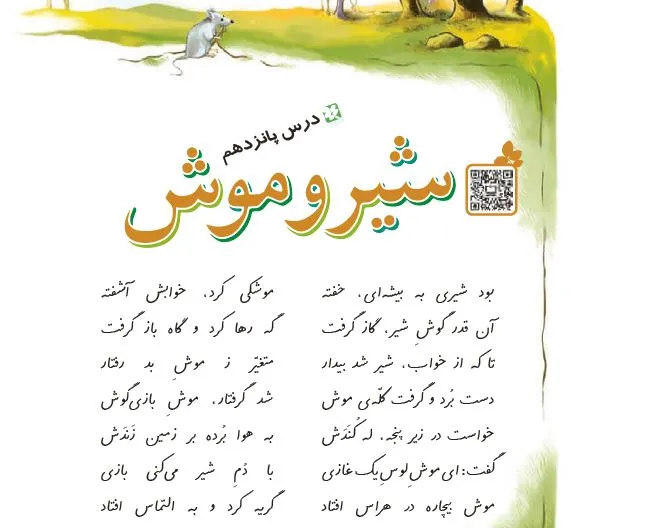 درس پانزدهم
شیر و موش
بود شیری به بیشه‌ای، خفته موشکی کرد، خوابش آشفته
آن قدر گوشِ شیر، گاز گرفت گه رها کرد و گاه باز گرفت
تا که از خواب، شیر شد بیدار متغیّر ز موشِ بد رفتار
دست بُرد و گرفت کلّه‌ی موش شد گرفتار، موشِ بازی‌گوش
خواست در زیر پنجه، لِه کُنَدَش به هوا بُرده بر زمین زَنَدَش
گفت: ای موشِ لوسِ یک غازی با دُمِ شیر می‌کنی بازی
موش بیچاره در هراس افتاد گریه کرد و به التماس افتاد